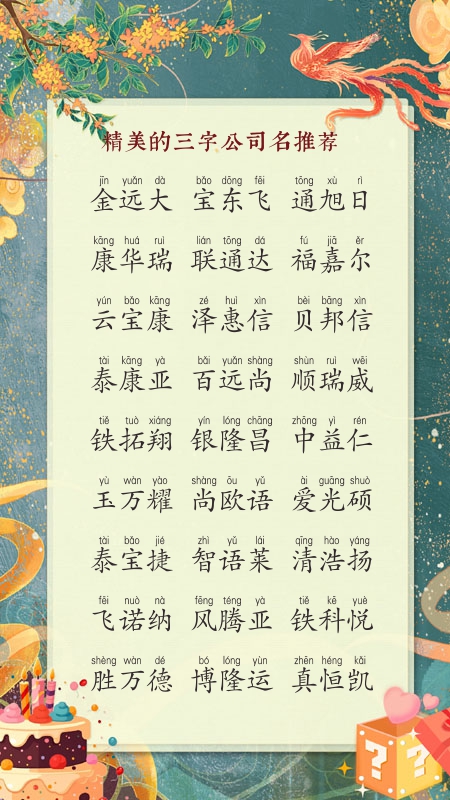 精美的三字公司名推荐
jīn yuǎn dà bǎo dōng fēi tōng xù rì
金远大 宝东飞 通旭日
kāng huá ruì lián tōng dá fú jiā ěr
康华瑞 联通达 福嘉尔
yún bǎo kāng zé huì xìn bèi bāng xìn
云宝康 泽惠信 贝邦信
tài kāng yà bǎi yuǎn shàng shùn ruì wēi
泰康亚 百远尚 顺瑞威
tiě tuò xiáng yín lóng chāng zhōng yì rén
铁拓翔 银隆昌 中益仁
yù wàn yào shàng ōu yǔ ài guāng shuò
玉万耀 尚欧语 爱光硕
tài bǎo jié zhì yǔ lái qīng hào yáng
泰宝捷 智语莱 清浩扬
fēi nuò nà fēng téng yà tiě kē yuè
飞诺纳 风腾亚 铁科悦
shèng wàn dé bó lóng yùn zhēn héng kǎi
胜万德 博隆运 真恒凯
? ?